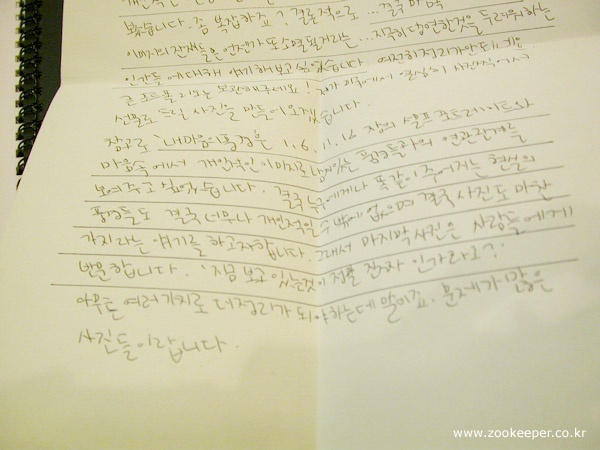 보았습니다. 좀 복잡하죠? 결론적으로 ... 결국 마음
이미지의 잔재들은 언젠가 또 소멸될거라는 ... 지극히 당연한것을 두려워하는
인간들에 대해 얘기해보고 싶었습니다. 여전히 정리가 안되네요.
큰 포트폴리오는 보관해주세요! 제가 미국에서 열심히 사진찍어서
선물로 드릴 사진을 만들어 오겠습니다.
참고로 '내마음의풍경은 1, 6, 11, 16 장의 셀프 포트레이트와
마음속에서 개인적인 이미지로 남아있는 풍경들과의 연관관계를
보여주고 싶었습니다. 결국 누구에게나 똑같이 주어지는 현실의
풍경들도 결국 너무나 개인적일 수 밖에 없으며 결국 사진도 마찬
가지라는 얘기를 하고자합니다. 그래서 마지막 사진은 사람들에게
반문합니다. '지금 보고 있는것이 정말 진짜 인가라고?'
아무튼 여러가지로 더 정리가 되야하는데 말이죠. 문제가 많은
사진들이랍니다.
www.zookeeper.co.kr